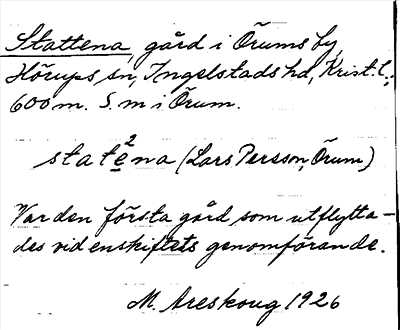 Stattena, gård i Örums by,
Hörups sn, Ingelstads hd, Krist. l.;
600 m. S. m i Örum.
state̲²na (Lars Persson, Örum)
Var den första gård, som utflytta-
des vid enskiftets genomförande.
M. Areskoug 1926